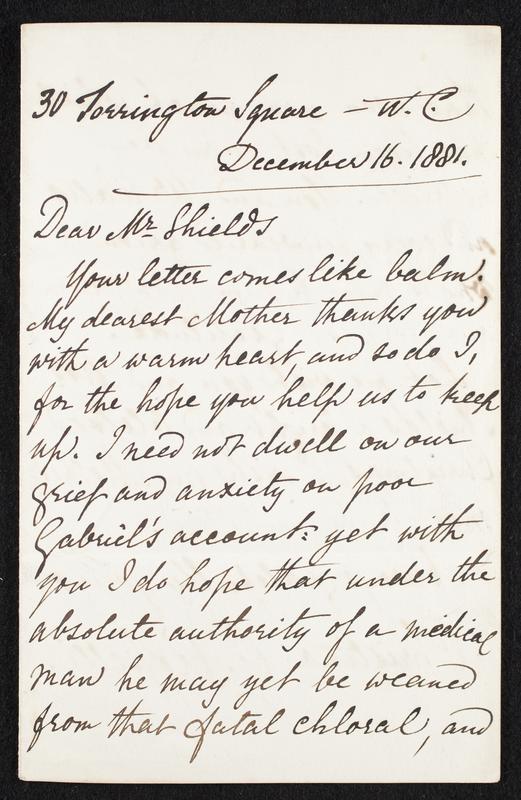 30 Torrington Square — W. C.
December 16. 1881.
Dear Mr. Shields
Your letter comes like balm.
My dearest Mother thanks you
with a warm heart, and so do I,
for the hope you help us to keep
up. I need not dwell on our
grief and anxiety on poor
Gabriel's account: yet with
you I do hope that under the
absolute authority of a medical
man he may yet be weaned
from that fatal chloral, and